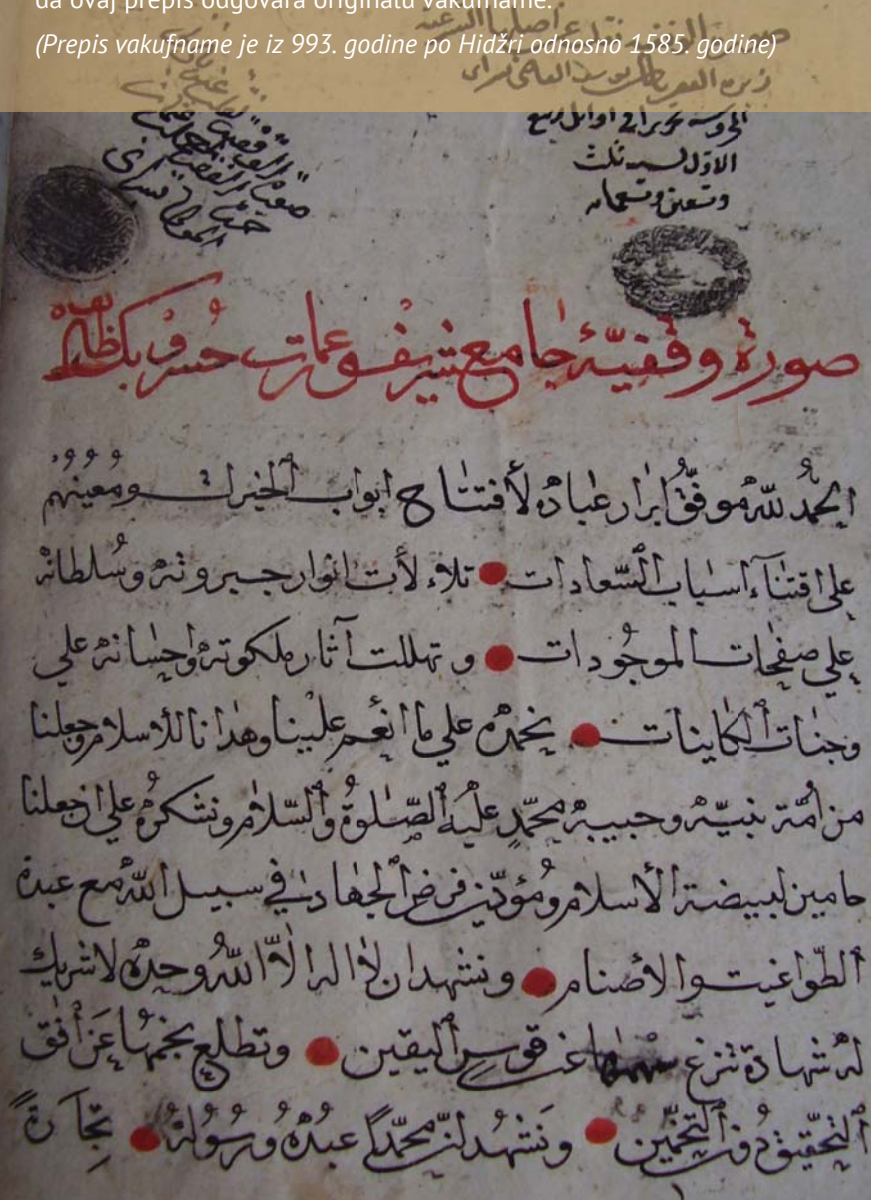 da ovaj prepis odgovara originalu vakufname.
(Prepis vakufname je iz 993. godine po Hidžri odnosno 1585. godine)
المحروسة تحريرا في اوايل ربيع
الاول لسنه ثلث
وتسعين وتسعمايه
صورة وقفيّۀ جامع شريف وعمارت خسرو بك
الحمد للّه موفّق ابرار عباده لأفتتاح ابواب الخيرات ومُعينهُم
على اقتناء اسباب السّعادات تلاءلأت انوار جبروته وسُلطانه
على صفحات الموجُودات و تهللت آثار ملكوته واحسانه علي
وجنات الكاينات نحمده علي ما انعم علينا وهدانا للأسلام وجعلنا
من امّة نبيّه وحبيبه محمّد عليه الصّلوة والسّلام ونشكرهُ على ان جعلنا
حامين لبيضة الأسلام ومُؤدّين فرض الجهاد في سبيل اللّه مع عبدة
الطّواغيت والاصنام ونشهد ان لا اله الّا اللّهُ وحده لا شريك
له شهادة تنزع سهمها عن قوس اليقين وتطلع نجمها عن أفق
التحقيق دون التخمين ونشهد انّ محمّداً عبدُهُ ورسُولهُ